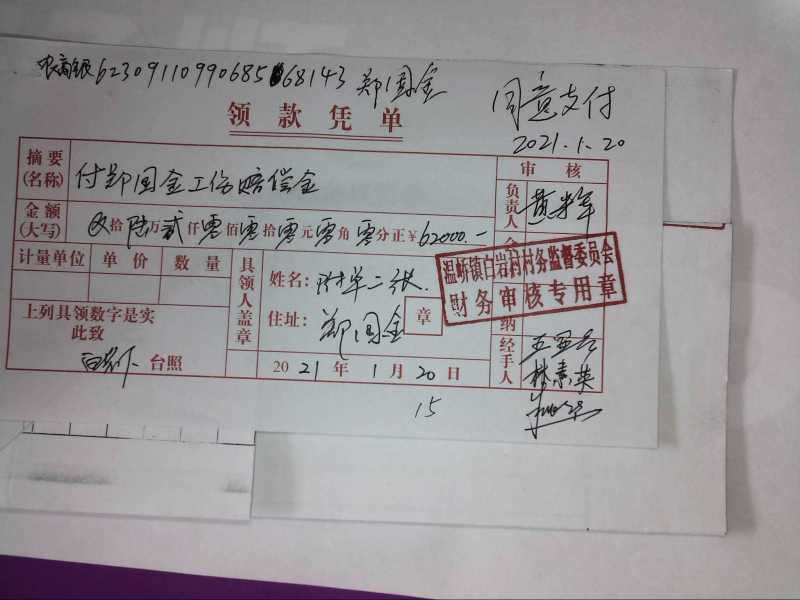 农商银6230911099068568143 郑国金
同意支付
2021.1.20
领款凭单
摘要(名称) 付郑国金工伤赔偿金
审核
负责人
金额(大写) 拾陆万贰仟零佰零拾零元零角零分正¥62000.-
计量单位 单价 数量
具领人盖章
姓名:附单二张.
住址:郑国金 章
温峤镇白岩村村务监督委员会
财务审核专用章
纳
上列具领数字是实
此致
台照
2021年1月20日
经手人
林素英
15